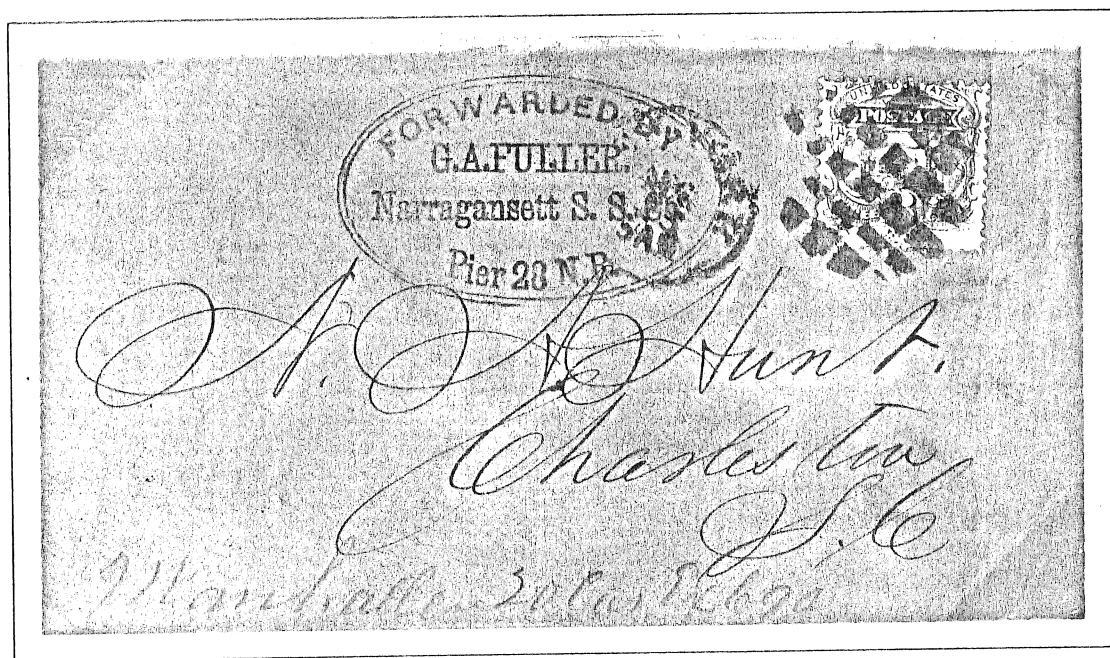 FORWARDED BY
G.A.FULLER.
Narragansett S. S. Co.
Pier 28 N.R.
UNITED STATES
POSTAGE
N. A. Hunt.
Charleston
S. C
Manhattan